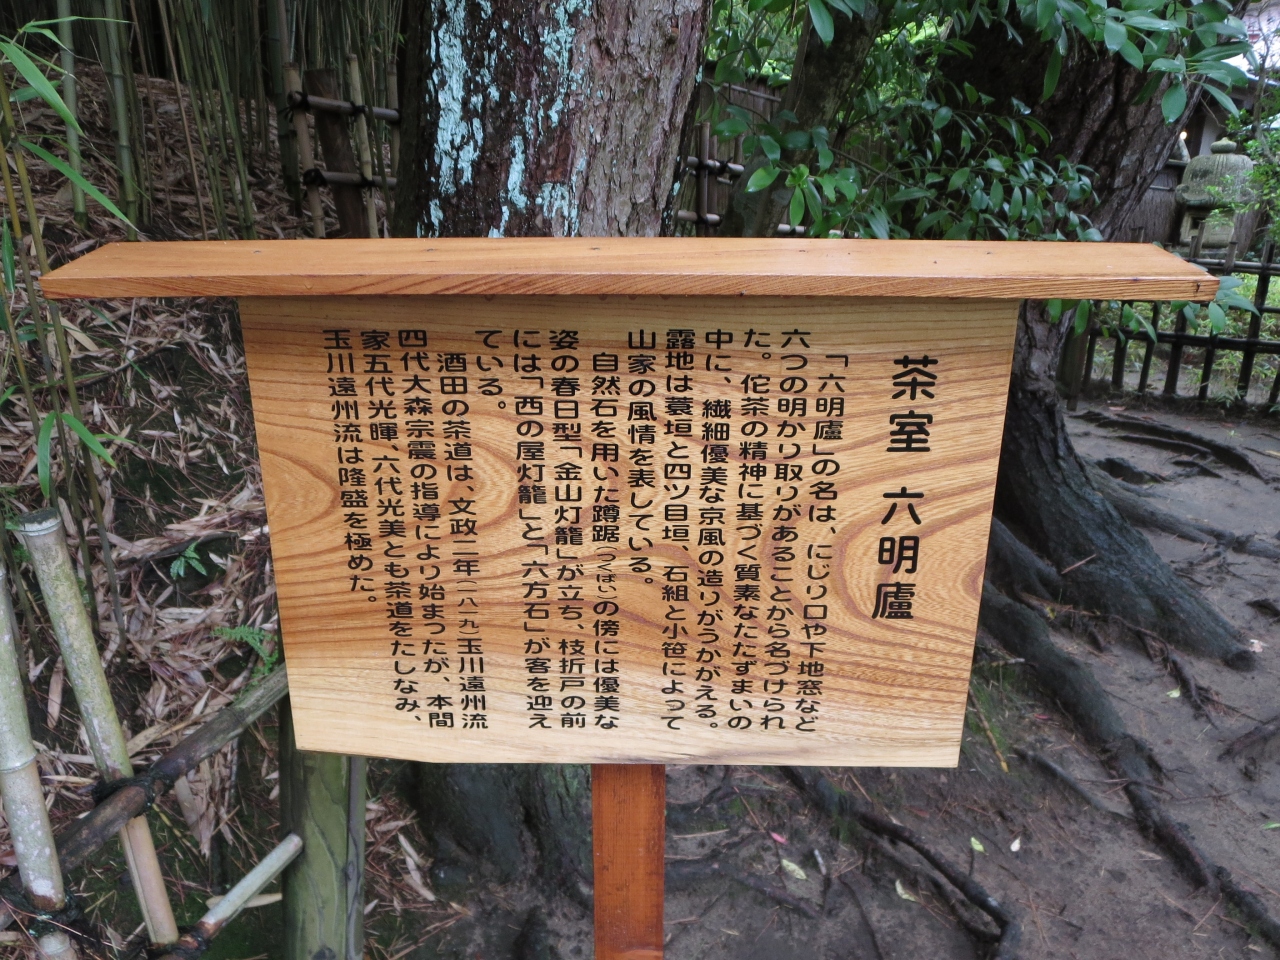 茶室 六明廬
「六明廬」の名は、にじり口や下地窓など
六つの明かり取りがあることから名づけられ
た。侘茶の精神に基づく質素なたたずまいの
中に、繊細優美な京風の造りがうかがえる。
露地は蓑垣と四ツ目垣、石組と小笹によって
山家の風情を表している。
自然石を用いた蹲踞（つくばい）の傍には優美な
姿の春日型「金山灯籠」が立ち、枝折戸の前
には「西の屋灯籠」と「六方石」が客を迎え
ている。
酒田の茶道は、文政二年（一八一九）玉川遠州流
四代大森宗震の指導により始まったが、本間
家五代光暉、六代光美とも茶道をたしなみ、
玉川遠州流は隆盛を極めた。